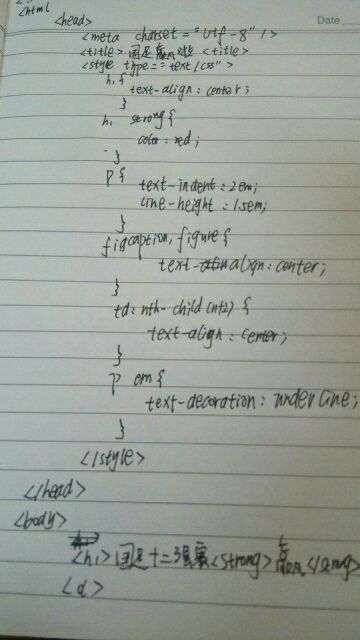 <html
Date
<head>
<meta charset = "utf-8" />
<title> 国足赢啦 <title>
<style type = "text/css">
h1 {
text-align: center;
}
h1 strong {
color: red;
}
p {
text-indent: 2em;
line-height: 1.5em;
}
figcaption, figure {
text-align: center;
}
td: nth-child(n+2) {
text-align: center;
}
p em {
text-decoration: underline;
}
</style>
</head>
<body>
<h1> 国足十二强赛 <strong> </strong>
<d>